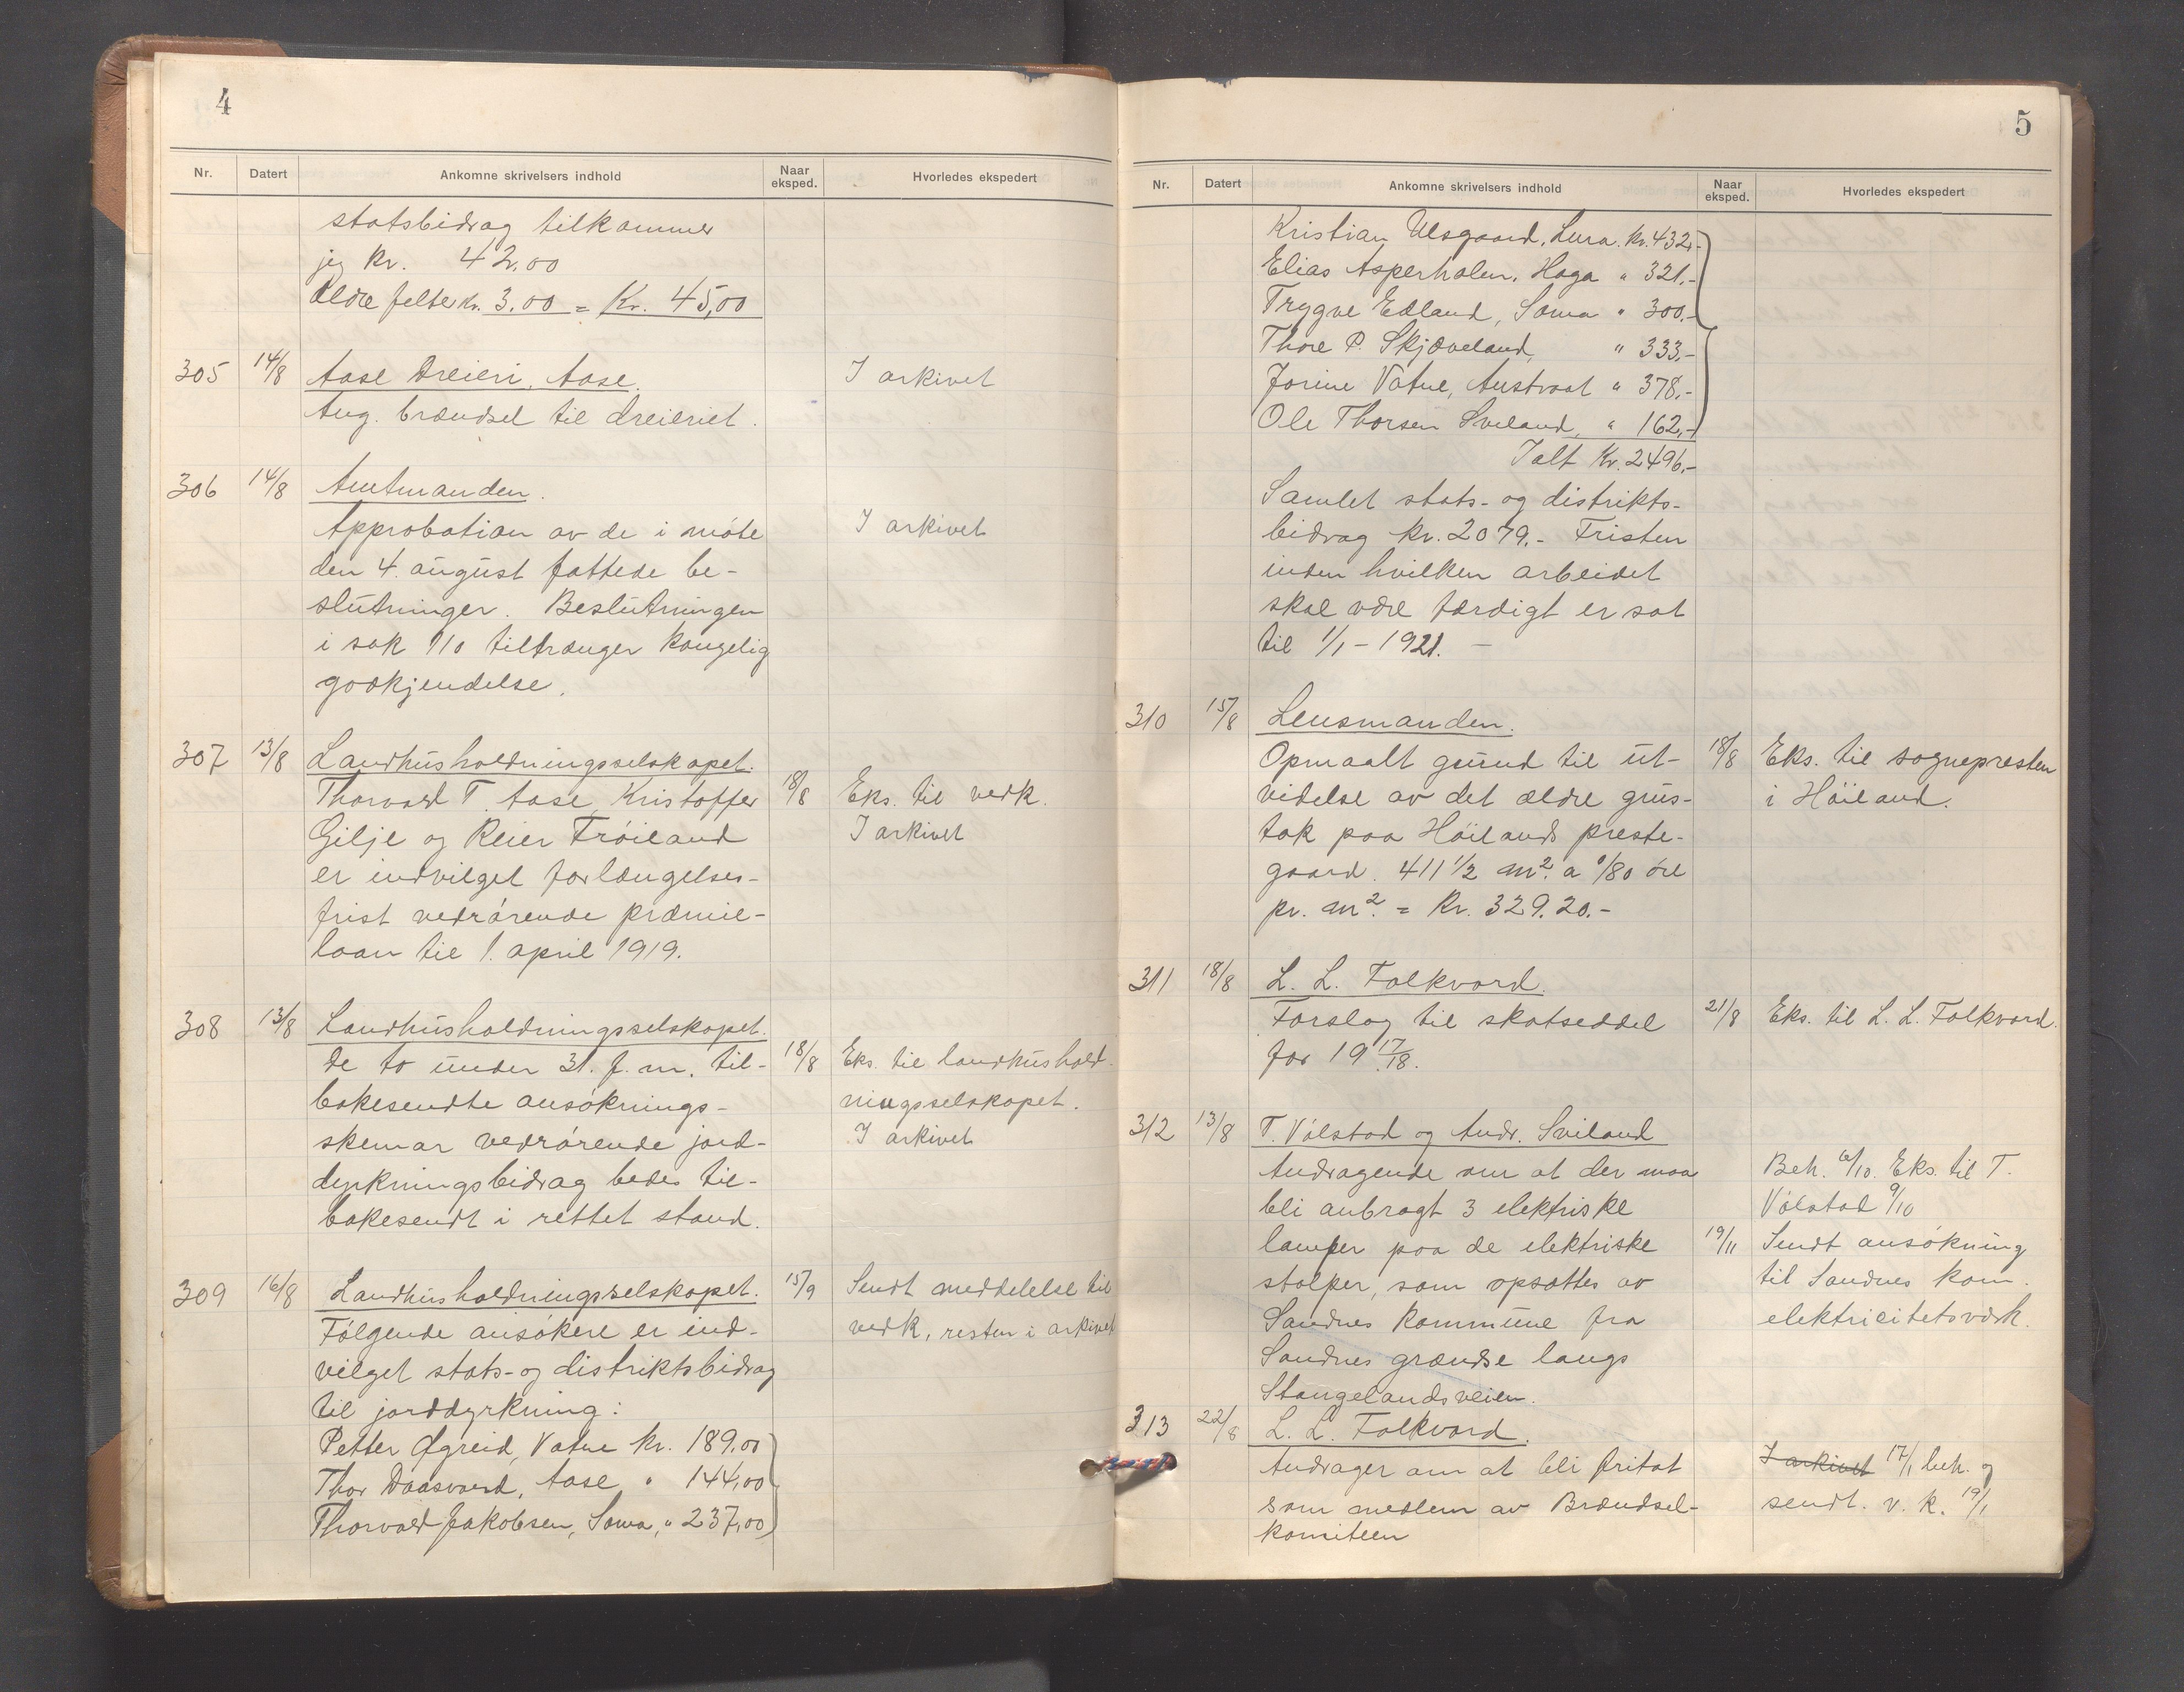 4
Nr. Datert Ankomne skrivelsers indhold Naar eksped. Hvorledes ekspedert
statsbidrag tilkommer
jeg Kr. 42.00
ældre felter Kr. 3.00 = Kr. 45,00
305 14/8 Aase Dreieri, Aase. I arkivet
Ang. brændsel til dreieriet.
306 14/8 Amtmanden.
Approbation av de i møte I arkivet
den 4. august fattede be-
slutninger. Beslutningen
i sak 110 tiltrænger kongelig
godkjendelse.
307 13/8 Landhusholdningsselskapet.
Thorvald T. Aase, Kristoffer 18/8 Eks. til vedk.
Gilje og Reier Frøiland I arkivet
er indvilget forlængelses-
frist vedrørende præmie-
laan til 1. april 1919.
308 13/8 Landhusholdningsselskapet.
De to under 31. f. m. til- 18/8 Eks. til landhushold-
bakesendte ansøknings- ningsselskapet.
skemar vedrørende jord- I arkivet
dyrkningsbidrag bedes til-
bakesendt i rettet stand.
309 16/8 Landhusholdningsselskapet. 15/9 Sendt meddelelse til
Følgende ansøkere er ind- vedk, resten i arkivet
vilget stats- og distriktsbidrag
til jorddyrkning:
Petter Øgreid, Vatne Kr. 189,00
Thor Daasvand, Aase " 144,00
Thorvald Jakobsen, Soma, " 237,00
5
Nr. Datert Ankomne skrivelsers indhold Naar eksped. Hvorledes ekspedert
Kristian Ulsgaard, Lura. Kr. 432,-
Elias Asperholen, Hoga " 321.-
Trygve Edland, Soma " 300.-
Thore P. Skjæveland, " 333,-
Jorine Vatne, Austvoal " 378.-
Ole Thorsen Sviland, " 162,-
Ialt Kr. 2496,-
Samlet stats- og distrikts-
bidrag kr. 2079.- Fristen
inden hvilken arbeidet
skal være færdigt er sat
til 1/1 - 1921. -
310 15/8 Lensmanden.
Opmaalt grund til ut- 18/8 Eks. til sognepresten
videlse av det ældre grus- i Høiland.
tak paa Høilands preste-
gaard. 411 1/2 m². a 0/80 øre
pr. m². = Kr. 329.20.-
311 18/8 L. L. Folkvord.
Forslag til skatseddel 21/8 Eks. til L. L. Folkvord.
for 19 17/18.
312 13/8 T. Vølstad og Andr. Sviland
Andragende om at der maa Beh. 6/10. Eks. til T.
bli anbragt 3 elektriske Vølstad 9/10
lamper paa de elektriske 19/11 Sendt ansøkning
stolper, som opsattes av til Sandnes kom.
Sandnes Kommune fra elektricitetsværk.
Sandnes grændse langs
Stangelandsveien.
313 22/8 L. L. Folkvord.
Andrager om at bli fritat I arkivet 17/1 beh. og
som medlem av Brændsel- sendt. v. k. 19/1
komiteen